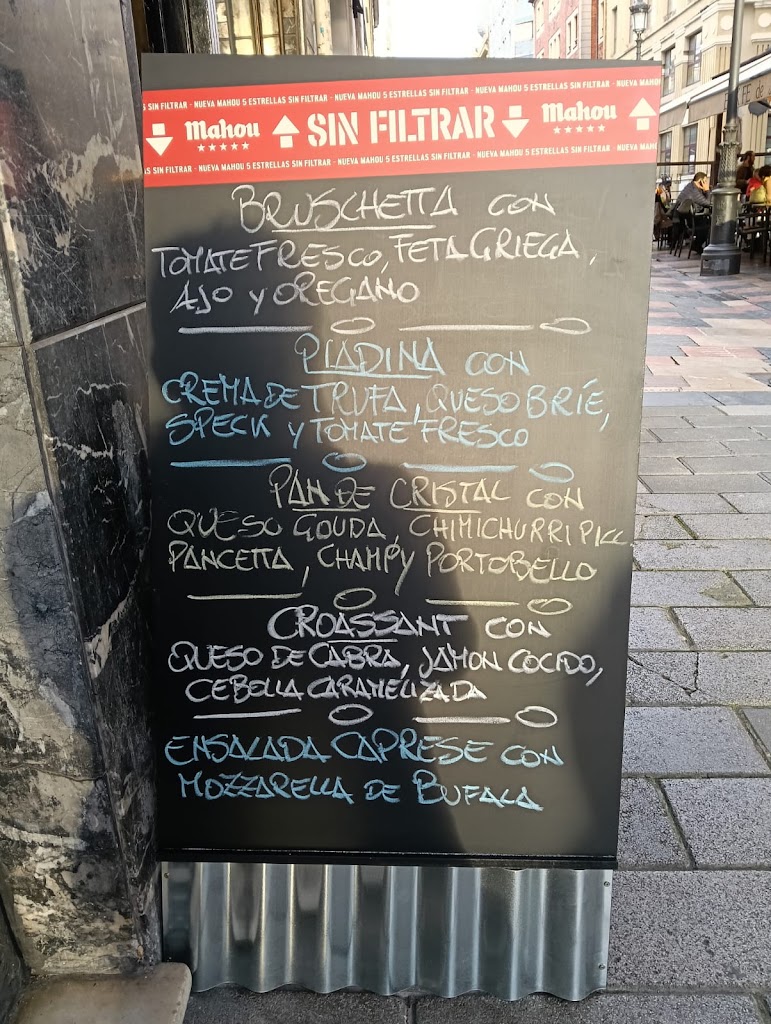 S SIN FILTRAR - NUEVA MAHOU 5 ESTRELLAS SIN FILTRAR - NUEVA MAHOU 5 ESTRELLAS SIN FILTRAR - NUEVA MAHOU 5 ESTRELLAS SIN FILTRAR - NUEVA MAH
Mahou SIN FILTRAR Mahou
SIN FILTRAR - NUEVA MAHOU 5 ESTRELLAS SIN FILTRAR - NUEVA MAHOU 5 ESTRELLAS SIN FILTRAR - NUEVA MAHOU 5 ESTRELLAS SIN FILTRAR - NUEVA MAH
BRUSCHETTA CON
TOMATE FRESCO, FETA GRIEGA,
AJO Y OREGANO
PIADINA CON
CREMA DE TRUFA, QUESO BRÍE,
SPECK Y TOMATE FRESCO
PAN DE CRISTAL CON
QUESO GOUDA, CHIMICHURRI
PANCETTA, CHAMP Y PORTOBELLO
CROASSANT CON
QUESO DE CABRA, JAMON COCIDO,
CEBOLLA CARAMELIZADA
ENSALADA CAPRESE CON
MOZZARELLA DE BUFALA